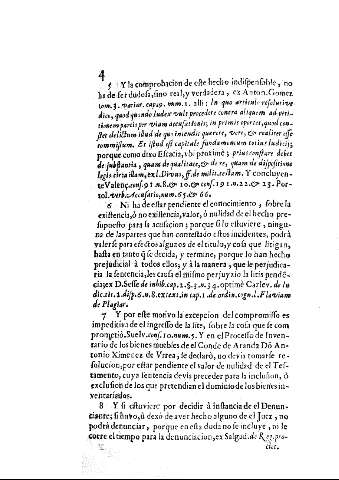 4
5 Y la comprobacion de este hecho indispensable, no
ha de ser dudosa, sino real, y verdadera, ex Anton. Gomez
tom. 3. variar. cap. 9. num. 1. alli: In quo articulo resolutive
dico, quod quando iudex procedere contra aliquem ad peti-
tionem partis per viam accusationis, in primis oportet, quod con-
stet delictum illud de quo intendit quærere, vere, & realiter esse
commissum. Et istud est capitale fundamentum totius iudicii;
porque como dixo Escacia, ubi proximè; prius constare debet
de substantia, quam de qualitate, & de re, quam de dispositione
legis circa illam, ex l. Divus, ff. de milit. testam. Y concluyen-
te Valenç. cons. 91 n. 8. & 10. & cons. 191 n. 22. & 23. Por-
tol. verb. Accusatio, num. 65. & 66.
6 Ni ha de estar pendiente el conocimiento, sobre la
existencia, ò no existencia, valor, ò nulidad de el hecho pre-
supuesto para la acusacion; porque si lo estuviere, ningu-
no de las partes que han contestado estos incidentes, podrà
valerse para efectos algunos de el titulo, y cosa que litigan,
hasta en tanto q̃ se decida, y termine, porque lo han hecho
prejudicial à todos ellos; y à la manera, que le perjudica-
ria la sentencia, les causa el mismo perjuyzio la litis pendē-
cia; ex D. Sesse de inhib. cap. 2. §. 3. n. 34. optimè Carlev. de Iu-
dic. tit. 2. disp. 6. n. 8. ex text. in cap. 1. de ordin. cogn. l. Flaviam
de Plagiar.
7 Y por este motivo la excepcion del compromisso es
impeditiva de el ingresso de la lite, sobre la cosa que se com
prometió. Suelv. cons. 10. num. 5. Y en el Processo de Inven-
tario de los bienes muebles de el Conde de Aranda Dō An-
tonio Ximenez de Urrea, se declarò, no devia tomarse re-
solucion, por estar pendiente el valor de nulidad de el Tes-
tamento, cuya sentencia devia preceder para la inclusion, ò
exclusion de los que pretendian el dominio de los bienes in-
ventariados.
8 Y si estuviere por decidir à instancia de el Denun-
ciante; si huvo, ò dexò de aver hecho alguno de el Juez, no
podrà denunciar, porque en essa duda no se incluye, ni le
corre el tiempo para la denunciacion, ex Salgad. de Reg. pro-
tec.